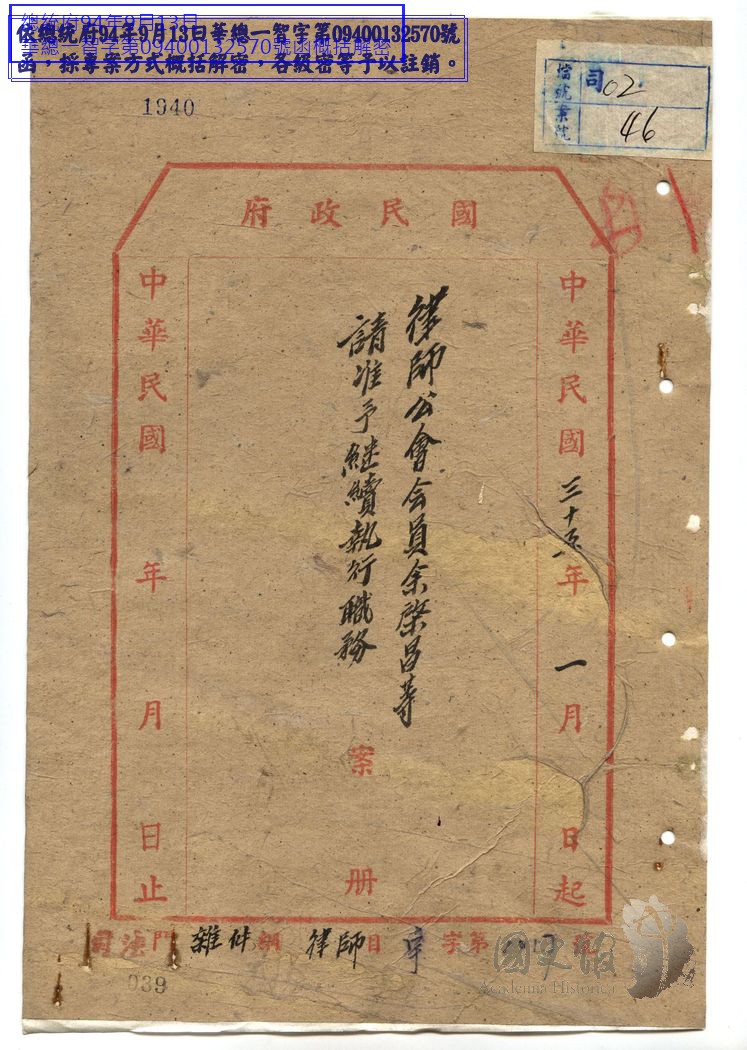 總統府94年9月13日
華總一智字第09400132570號函概括解密
依總統府94年9月13日華總一智字第09400132570號
函,採專案方式概括解密,各級密等予以註銷。
1940
檔號案號
司02
46
國民政府
中華民國三十五年一月 日起
律師公會会員余棨昌等
請准予继續執行職務
案册
中華民國 年 月 日止
司法門 雜件綱 律師目 字第 號
039
國史館
Academia Historica